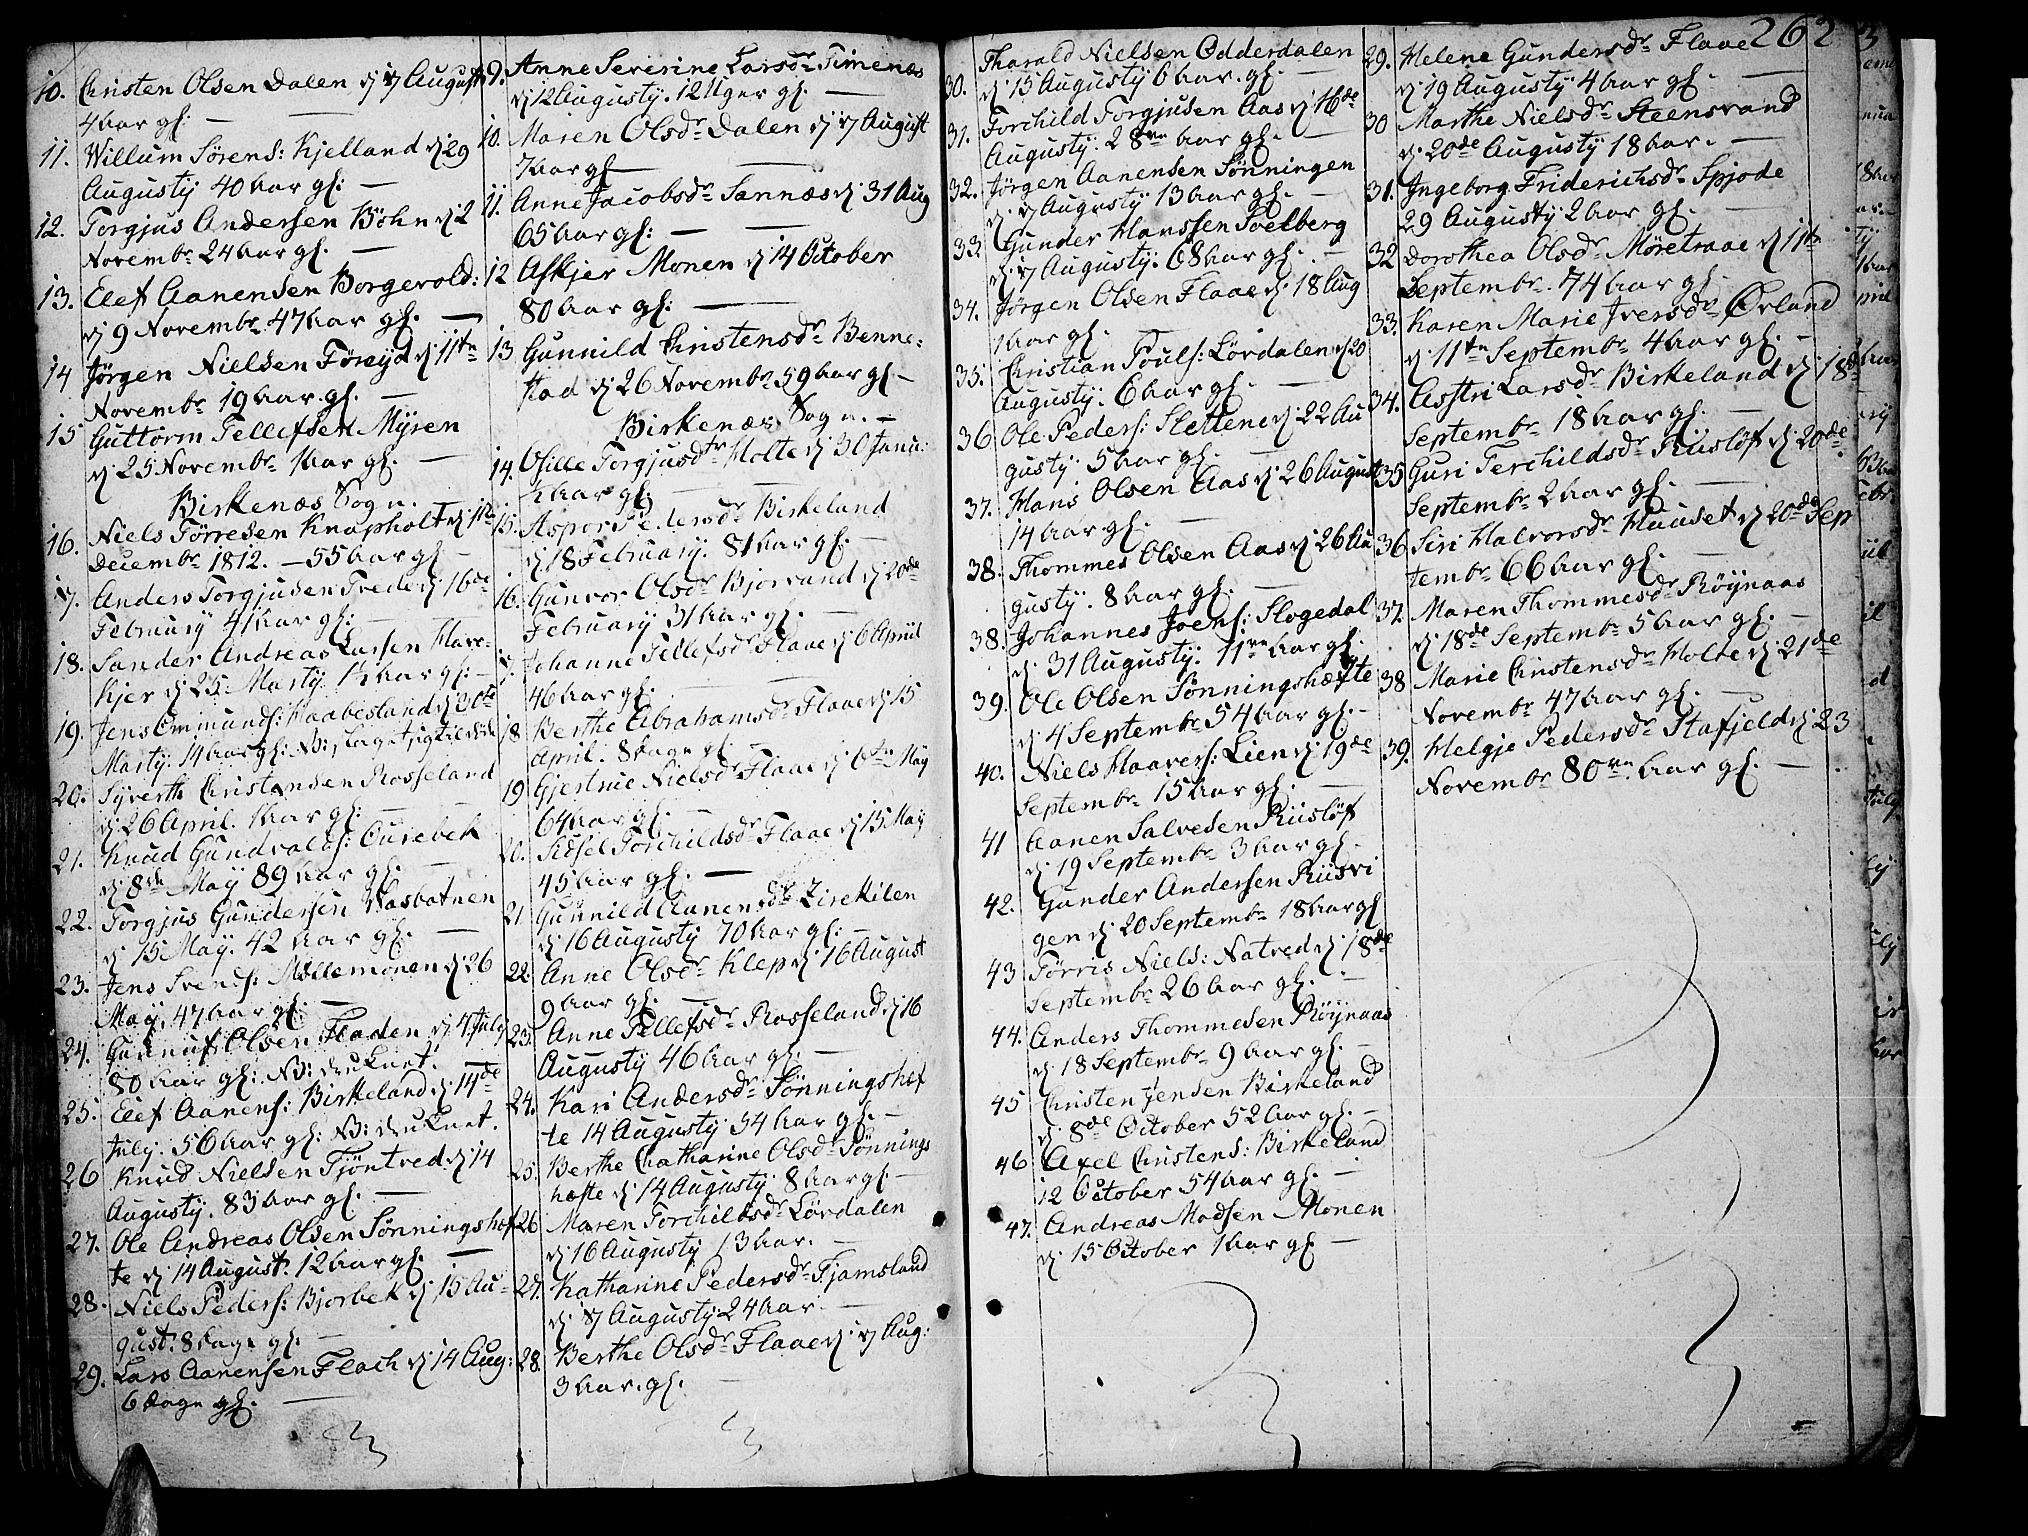 10. Christen Olsen Dalen d. 17 August
4 Aar gl. —
11. Willum Sørens: Kjelland d. 29
Augusty 40 Aar gl: —
12. Torgjus Andersen Bøhn d. 2
Novembr 24 Aar gl. —
13. Elef Aanensen Borgevold:
d. 9 Novembr. 47 Aar gl. —
14 Jørgen Nielsen Føreyd d. 11te
Novembr 19 Aar. gl. —
15 Guttorm Tellefsen Myren
d. 25 Novembr. 1 Aar gl. —
Birkenæs Sogn.
16. Niels Tørresen Knapholt d. 11te
Decembr 1812. — 55 Aar gl —
17. Anders Torgjusen Trede d. 16de
February 41 Aar gl: —
18. Sander Andreas Larsen Have-
kjer d. 25 Marty. ½ Aar gl: —
19. Jens Ommunds: Haabesland d. 30te
Marty. 14 Aar gl: NB: slaget
20. Syverth Christensen Rosseland
d. 26 April. 1 Aar gl: —
21. Knud Gundvalds: Ourebek
d. 8de May 89 Aar gl. —
22. Torgjus Gundersen Vasbotnen
d. 15 May. 42 Aar gl. —
23. Jens Svends: Mællemonen d. 26
May. 47 Aar gl. —
24. Gunnuf Olsen Fladen d. 4 July
80 Aar gl: NB: druknet.
25. Elef Aanens: Birkeland d. 14de
July. 56 Aar gl: NB: druknet.
26 Knud Nielsen Tjøntved d. 14
Augusty. 83 Aar gl. —
27. Ole Andreas Olsen Sønningshef
te d. 14 August. 12 Aar gl. —
28. Niels Peders: Bjorbek d. 15 Au-
gust. 8 Dage gl. —
29. Lars Aanensen Flach d. 14 Aug:
6 Dage gl. —
9. Anne Severine Larsdr Timenæs
d. 12 Augusty. 12 Uger gl. —
10. Maren Olsdr Dalen d. 17 August
7 Aar gl —
11. Anne Jacobsdr Sannæs d. 31 Aug
65 Aar gl: —
12 Askjer Monen d. 14 October
80 Aar gl: —
13 Gunnild Christensdr Benne:
stad d. 26 Novembr 59 Aar gl —
Birkenæs Sogn. —
14. Osille Torgjusdtr Holte d. 30 Janu:
½ Aar gl: —
15. Aspor Pedersdr Birkeland
d. 18 February. 81 Aar gl. —
16. Gunvor Olsdr Bjorvand d. 20de
February 31 Aar gl. —
17. Johanne Tellefsdr Flaae d. 6 April
46 Aar gl. —
18 Berthe Abrahamsdr Flaae d. 15
April. 8 Dage gl —
19 Gjertrue Nielsdr Flaae d. 6te May
64 Aar gl. —
20. Sidsel Torchildsdr Flaae d. 15 May
45 Aar gl. —
21 Gunnild Aanensdr Lirekilen
d. 16 Augusty 70 Aar gl: —
22 Anne Olsdr Klep d. 16 August
9 Aar gl. —
23. Anne Tellefsdr Rosseland d. 16
Augusty 46 Aar gl. —
24. Kari Andersdr Sønningshef
te 14 Augusty 54 Aar gl. —
25. Berthe Chatharine Olsdr Sønnings
hæfte d. 14 Augusty. 8 Aar gl —
26 Maren Torchildsdr Løvdalen
d. 16 Augusty 13 Aar. —
27. Katharine Pedersdr Fjamsland
d. 17 Augusty. 24 Aar. —
28. Berthe Olsdr Flaae d. 17 Aug:
3 Aar. gl. —
262
30. Tharald Nielsen Odderdalen
d. 15 Augusty 6 Aar. gl. —
31. Torchild Torgjusen Aas d. 16de
Augusty. 28 Aar gl. —
32. Jørgen Aanensen Sønningen
d. 17 Augusty 13 Aar gl. —
33 Gunder Hanssen Soelberg
d. 17 Augusty. 68 Aar gl. —
34. Jørgen Olsen Flaae d. 18 Aug
1 Aar gl. —
35. Christian Pouls: Løvdalen d. 20
Augusty. 6 Aar gl. —
36 Ole Peders: Slettene d. 22 Au
gusty. 5 Aar gl. —
37. Hans Olsen Aas d. 26 August
14 Aar gl. —
38. Thommes Olsen Aas d. 26 Au
gusty. 8 Aar gl. —
38. Johannes Joens: Slogedal
d. 31 Augusty. 11 Aar gl.
39. Ole Olsen Sønningshæfte
d. 4 Septembr 54 Aar gl. —
40. Niels Haavers: Lien d. 19de
Septembr. 15 Aar gl. —
41 Aanen Salvesen Riisløf
d. 19 Septembr 3 Aar gl. —
42. Gunder Andersen Riisvi
gen d. 20 Septembr 18 Aar gl
43 Tørris Niels: Natved d. 18de
Septembr 26 Aar gl. —
44. Anders Thommesen Røynaas
d. 18 Septembr 9 Aar gl. —
45 Christen Jensen Birkeland
d. 8de October 52 Aar gl. —
46 Axel Christens: Birkeland
12 October 54 Aar gl. —
47. Andreas Madsen Monen
d. 15 October 1 Aar gl —
29. Helene Gundersdr Flaae
d. 19 Augusty 4 Aar gl. —
30 Marthe Nielsdr Steensvand
d. 20de Augusty 18 Aar. —
31. Ingeborg Friderichsdr Spjode
29 Augusty 2 Aar gl. —
32 Dorothea Olsdr Møretraae d. 11te
Septembr. 74 Aar gl. —
33. Karen Marie Iversdr Ørland
d. 11te Septembr 4 Aar gl. —
34. Asstri Larsdr Birkeland d. 18de
Septembr 18 Aar gl. —
35 Guri Terchildsdr Riisløf d. 20de
Septembr 2 Aar gl. —
36 Siri Halvorsdr Huuset d. 20de Sep
tembr 66 Aar gl. —
37. Maren Thommesdr Røynaas
d. 18de Septembr 5 Aar gl. —
38 Marie Christensdr Holte d. 21de
Novembr 47 Aar gl. —
39. Helgje Pedersdr Stafjeld d. 23
Novembr 80 Aar gl. —